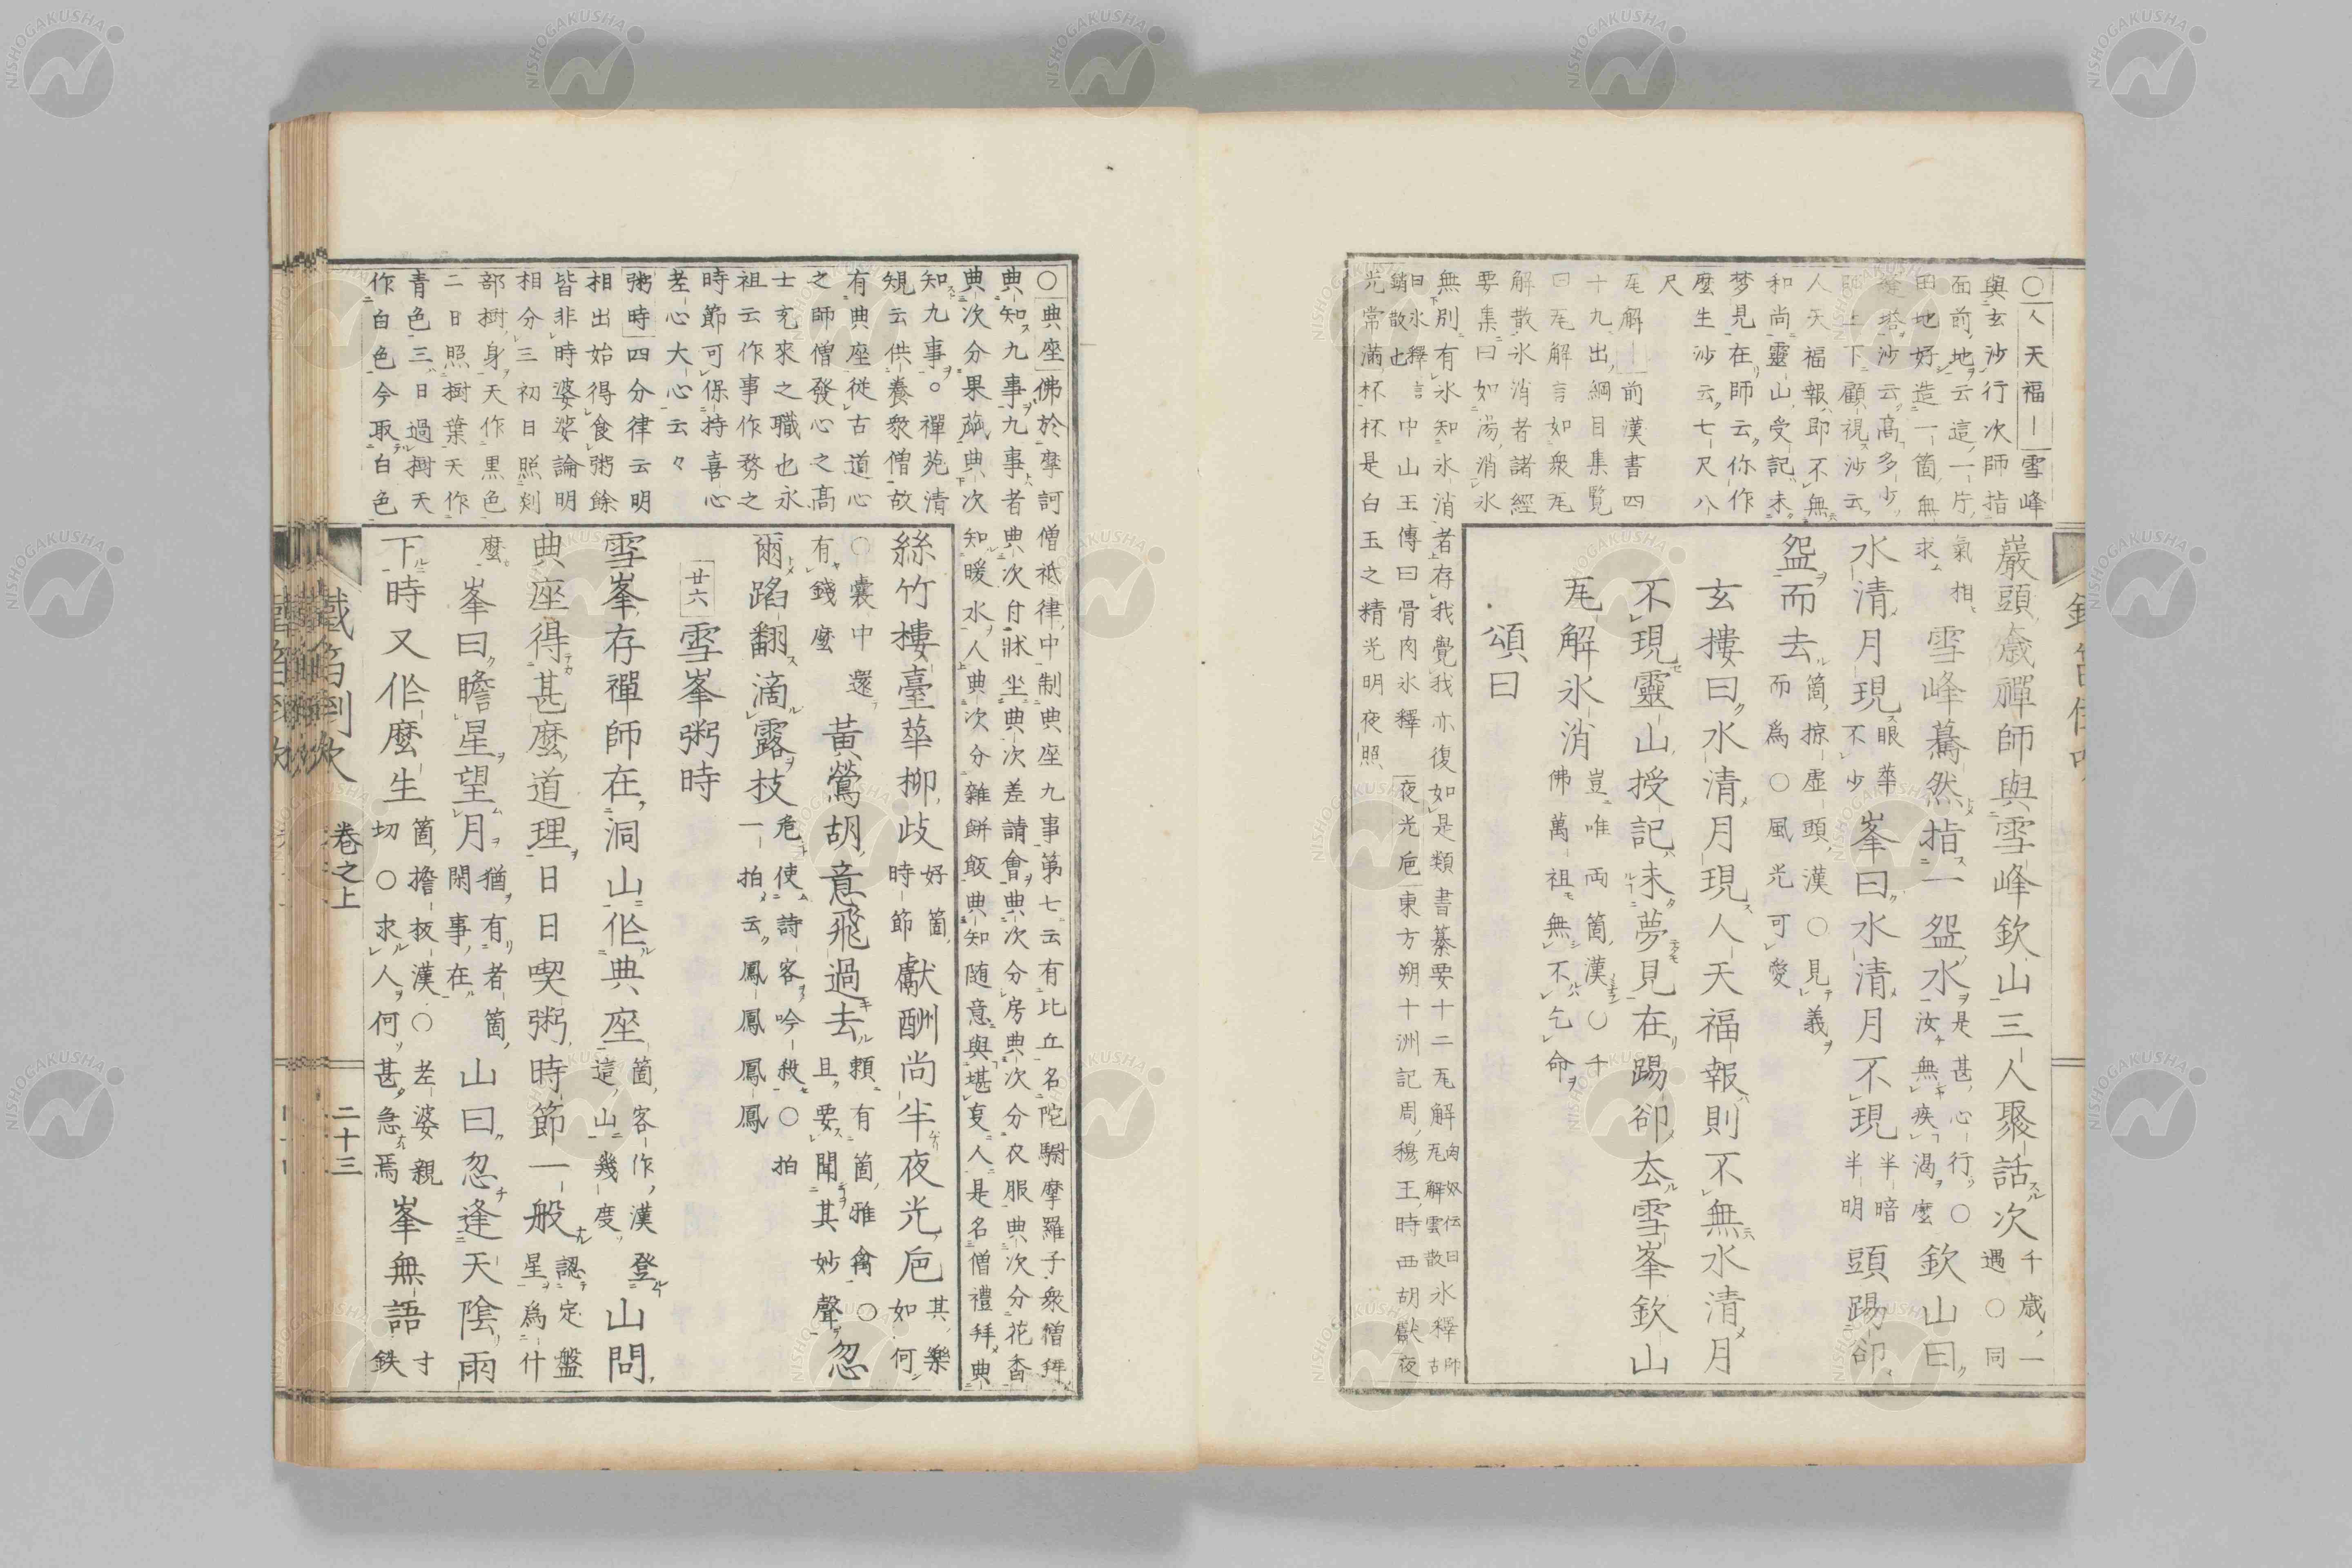 ○人天福｜雪峰
與玄沙行次師指
面前地云這一片
田地好造一箇無
縫塔沙云高多少
師上下顧視沙云
人天福報即不無
和尚靈山受記未
梦見在師云你作
麼生沙云七尺八
尺
瓦解｜前漢書四
十九出綱目集覧
曰瓦解言如衆瓦
解散氷消者諸經
要集曰如湯消氷
無別有氷知氷消者存我覺我亦復如是類書纂要十二瓦解
曰氷釋言
銷散也
中山王傳曰骨肉氷釋
夜光巵東方朔十洲記周穆王時西胡獻夜
光常滿杯杯是白玉之精光明夜照
巖頭奯禪師與雪峰欽山三人聚話次
千歳一
遇○同
氣相
求
雪峰驀然指一盌水
是甚心行○
汝無疾渴麼
欽山曰
水清月現
眼華
不少
峯曰水清月不現
半暗
半明
頭踢卻
盌而去
箇掠虛頭漢○見義
而爲○風光可愛
玄摟曰水清月現人天福報則不無水清月
不現靈山授記未夢見在踢卻去雪峯欽山
瓦解氷消
豈唯両箇漢○千
佛萬祖無不乞命
頌曰
○典座佛於摩訶僧祇律中制典座九事第七云有比丘名陀驃摩羅子衆僧拜
典知九事九事者典次付牀坐典次差請會典次分房典次分衣服典次分花香
典次分果蓏典次知暖水人典次分雜餅飯典知随意與堪叓人是名僧禮拜典
知九事○禪苑清
規云供養衆僧故
有典座従古道心
之師僧發心之高
士充來之職也永
祖云作事作務之
時節可保持喜心
老心大心云々
粥時四分律云明
相出始得食粥餘
皆非時婆婆論明
相分三初日照剡
部樹身天作黒色
二日照樹葉天作
青色三日過樹天
作白色今取白色
絲竹樓臺華柳歧
好箇
時節
獻酬尚半夜光巵
其樂
如何
○囊中還
有錢麼
黃鶯胡意飛過去
頼有箇雅禽○
且要聞其妙聲
忽
爾蹈翻滴露枝
危使詩客吟殺○拍
一拍云鳳鳳鳳鳳
廿六
雪峯粥時
雪峯存禪師在洞山作典座
箇客作漢登
這山幾度
山問
典座得甚麼道理日日喫粥時節一般
認定盤
星爲什
麼
峯曰瞻星望月
猶有者箇
閑事在
山曰忽逢天陰雨
下時又作麼生
箇擔板漢○老婆親
切○求人何甚急焉
峯無語
寸
鉄
卷之上
二十三